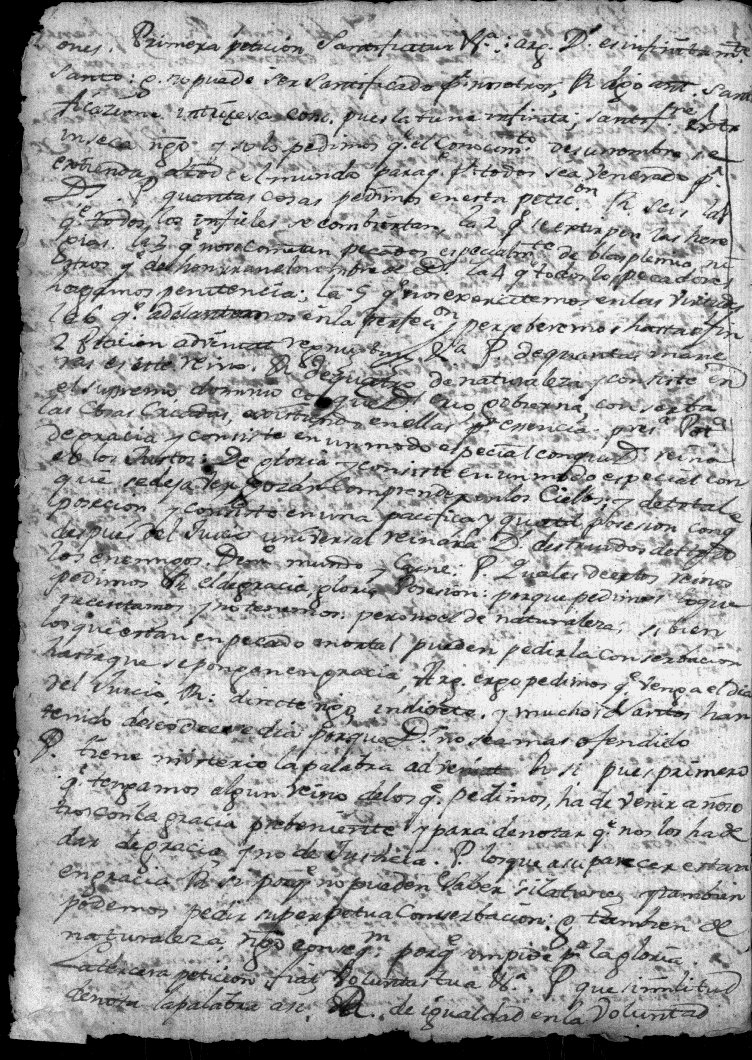 ones. Primera peticion Santificetur &ª: arg. Dˢ es infinitamᵗᵉ
santo: e. no puede ser santificado pʳ nosotros, R. dgo ant. Santi
ficazione intrinseca conc. pues la tiene infinita; santifⁿᵉ extr
inseca ngo y solo pedimos qᵉ el conocimᵗᵒ de su nombre se
extienda a todo el mundo para qᵉ de todos sea venerado pʳ
Dˢ. P. quantas cosas pedimos en esta peticᵒⁿ R. seis, la 1
qᵉ todos los infieles se combiertan, la 2 qᵉ se extirpen las here
gias. la 3 qᵉ no se cometan pecados especialmᵗᵉ de blasfemia, ni
otros qᵉ deshonrran el nombre de Dˢ. la 4 qᵉ todos los pecadores
hagamos penitencia; la 5 qᵉ nos exercitemos en las virtudes
la 6 qᵉ adelantemos en la perfecᵒⁿ y perseberemos hasta el fin
2 Peticion adveniat regnum tuum &ª P. de quantas mane
ras es este reino. R. de quatro de naturaleza y consiste en
el supremo dominio con que Dˢ govierna, conserba
las Cosas Creadas, existiendo en ellas pʳ esencia presª Potª
de gracia y consiste en un modo especial con que Dˢ reina
en los Justos: De gloria y consiste en un modo especial con
que se deja ver gozar y comprender en los Cielos; y de total
posecion, y consiste en una pacifica y quieta posesion con qᵉ
despues del Juicio universal reinara Dˢ destruidos de todo
los enemigos, Demº mundo y Carne: P. Quales de estos reinos
pedimos R. el de gracia, gloria Posesion: porque pedimos lo que
necesitamos y no tenemos: pero no el de naturaleza; si bien
los que estan en pecado mortal pueden pedir la conserbacion
hasta que se pongan en gracia, Arg. ergo pedimos qᵉ venga el dia
del Juicio, R: directe ngo, indirecte. y muchos Santos han
tenido deseo de ese dia porque Dˢ no sea mas ofendido
P. tiene misterio la palabra adveniat R. si pues primero
qᵉ tengamos algun reino de los qᵉ pedimos, ha de venir a noso
tros con la gracia prebeniente y para denotar qᵉ nos los ha de
dar de gracia y no de Justicia. P. los que a su parecer estan
en gracia R. si porqᵉ no pueden saber si la tienen y tambien
podemos pedir su perpetua Conserbacion: e tambien de
naturaleza, ngo conseqᵐ porqᵉ impide pª la gloria.
La tercera peticion fiat Voluntas tua &ª. P. que similitud
denota la palabra asi. R. de igualdad en la Voluntad